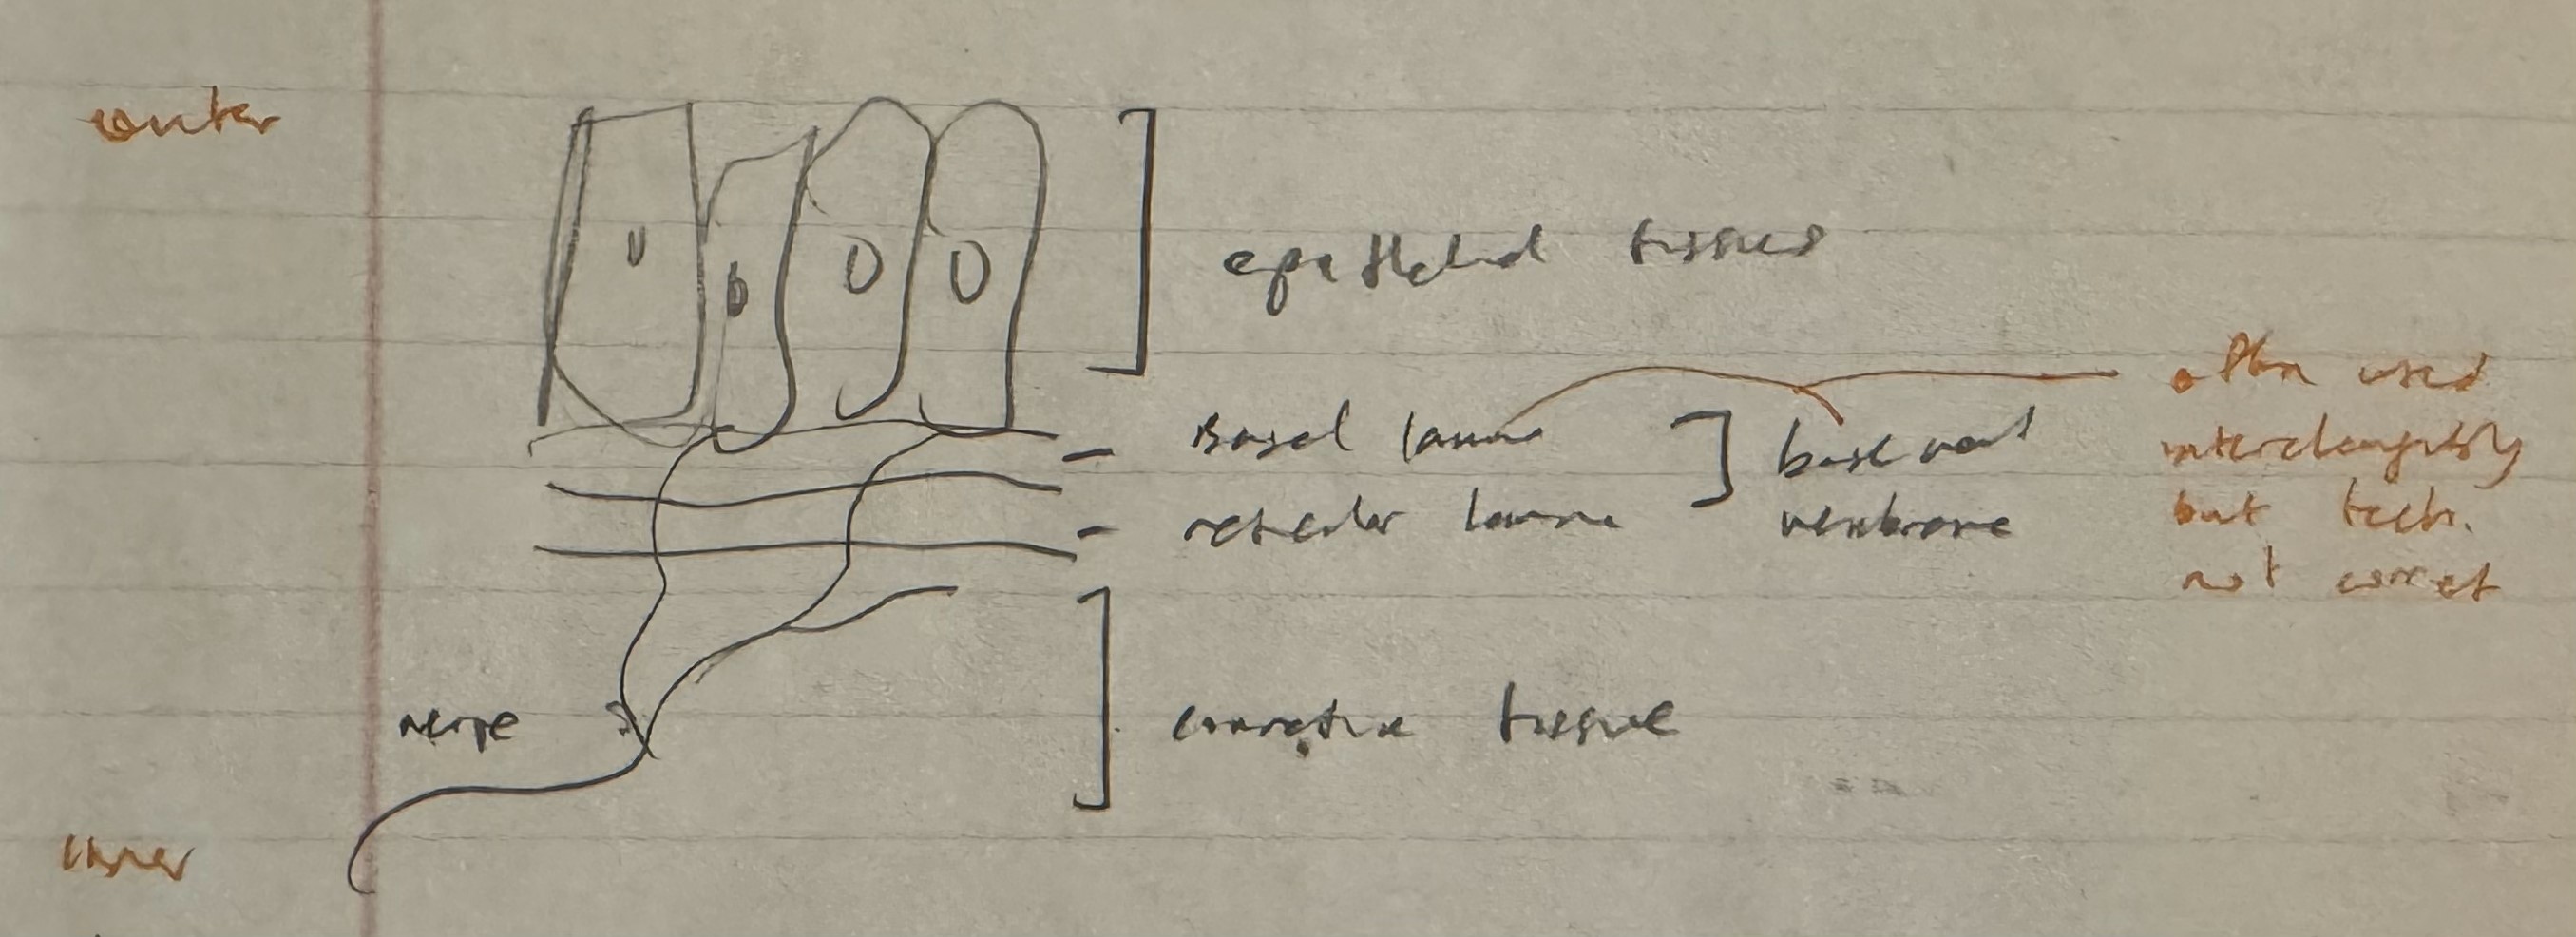 outer
epithelial tissues
often used
Basal lamina
basement
interchangeably
reticular lamina
membrane
but tech.
not correct
nerve
connective tissue
inner